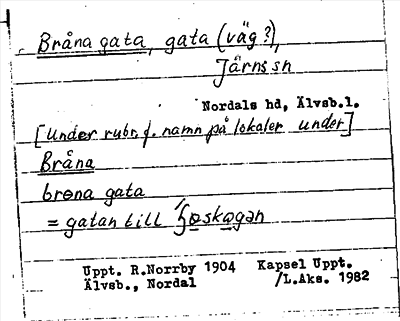 Bråna gata, gata (väg?),
Järns sn
Nordals hd, Älvsb.l.
[under rubr. f. namn på lokaler under]
Bråna
brøna gata
= gatan till
Uppt. R.Norrby 1904 Kapsel Uppt.
Älvsb., Nordal /L.Aks. 1982